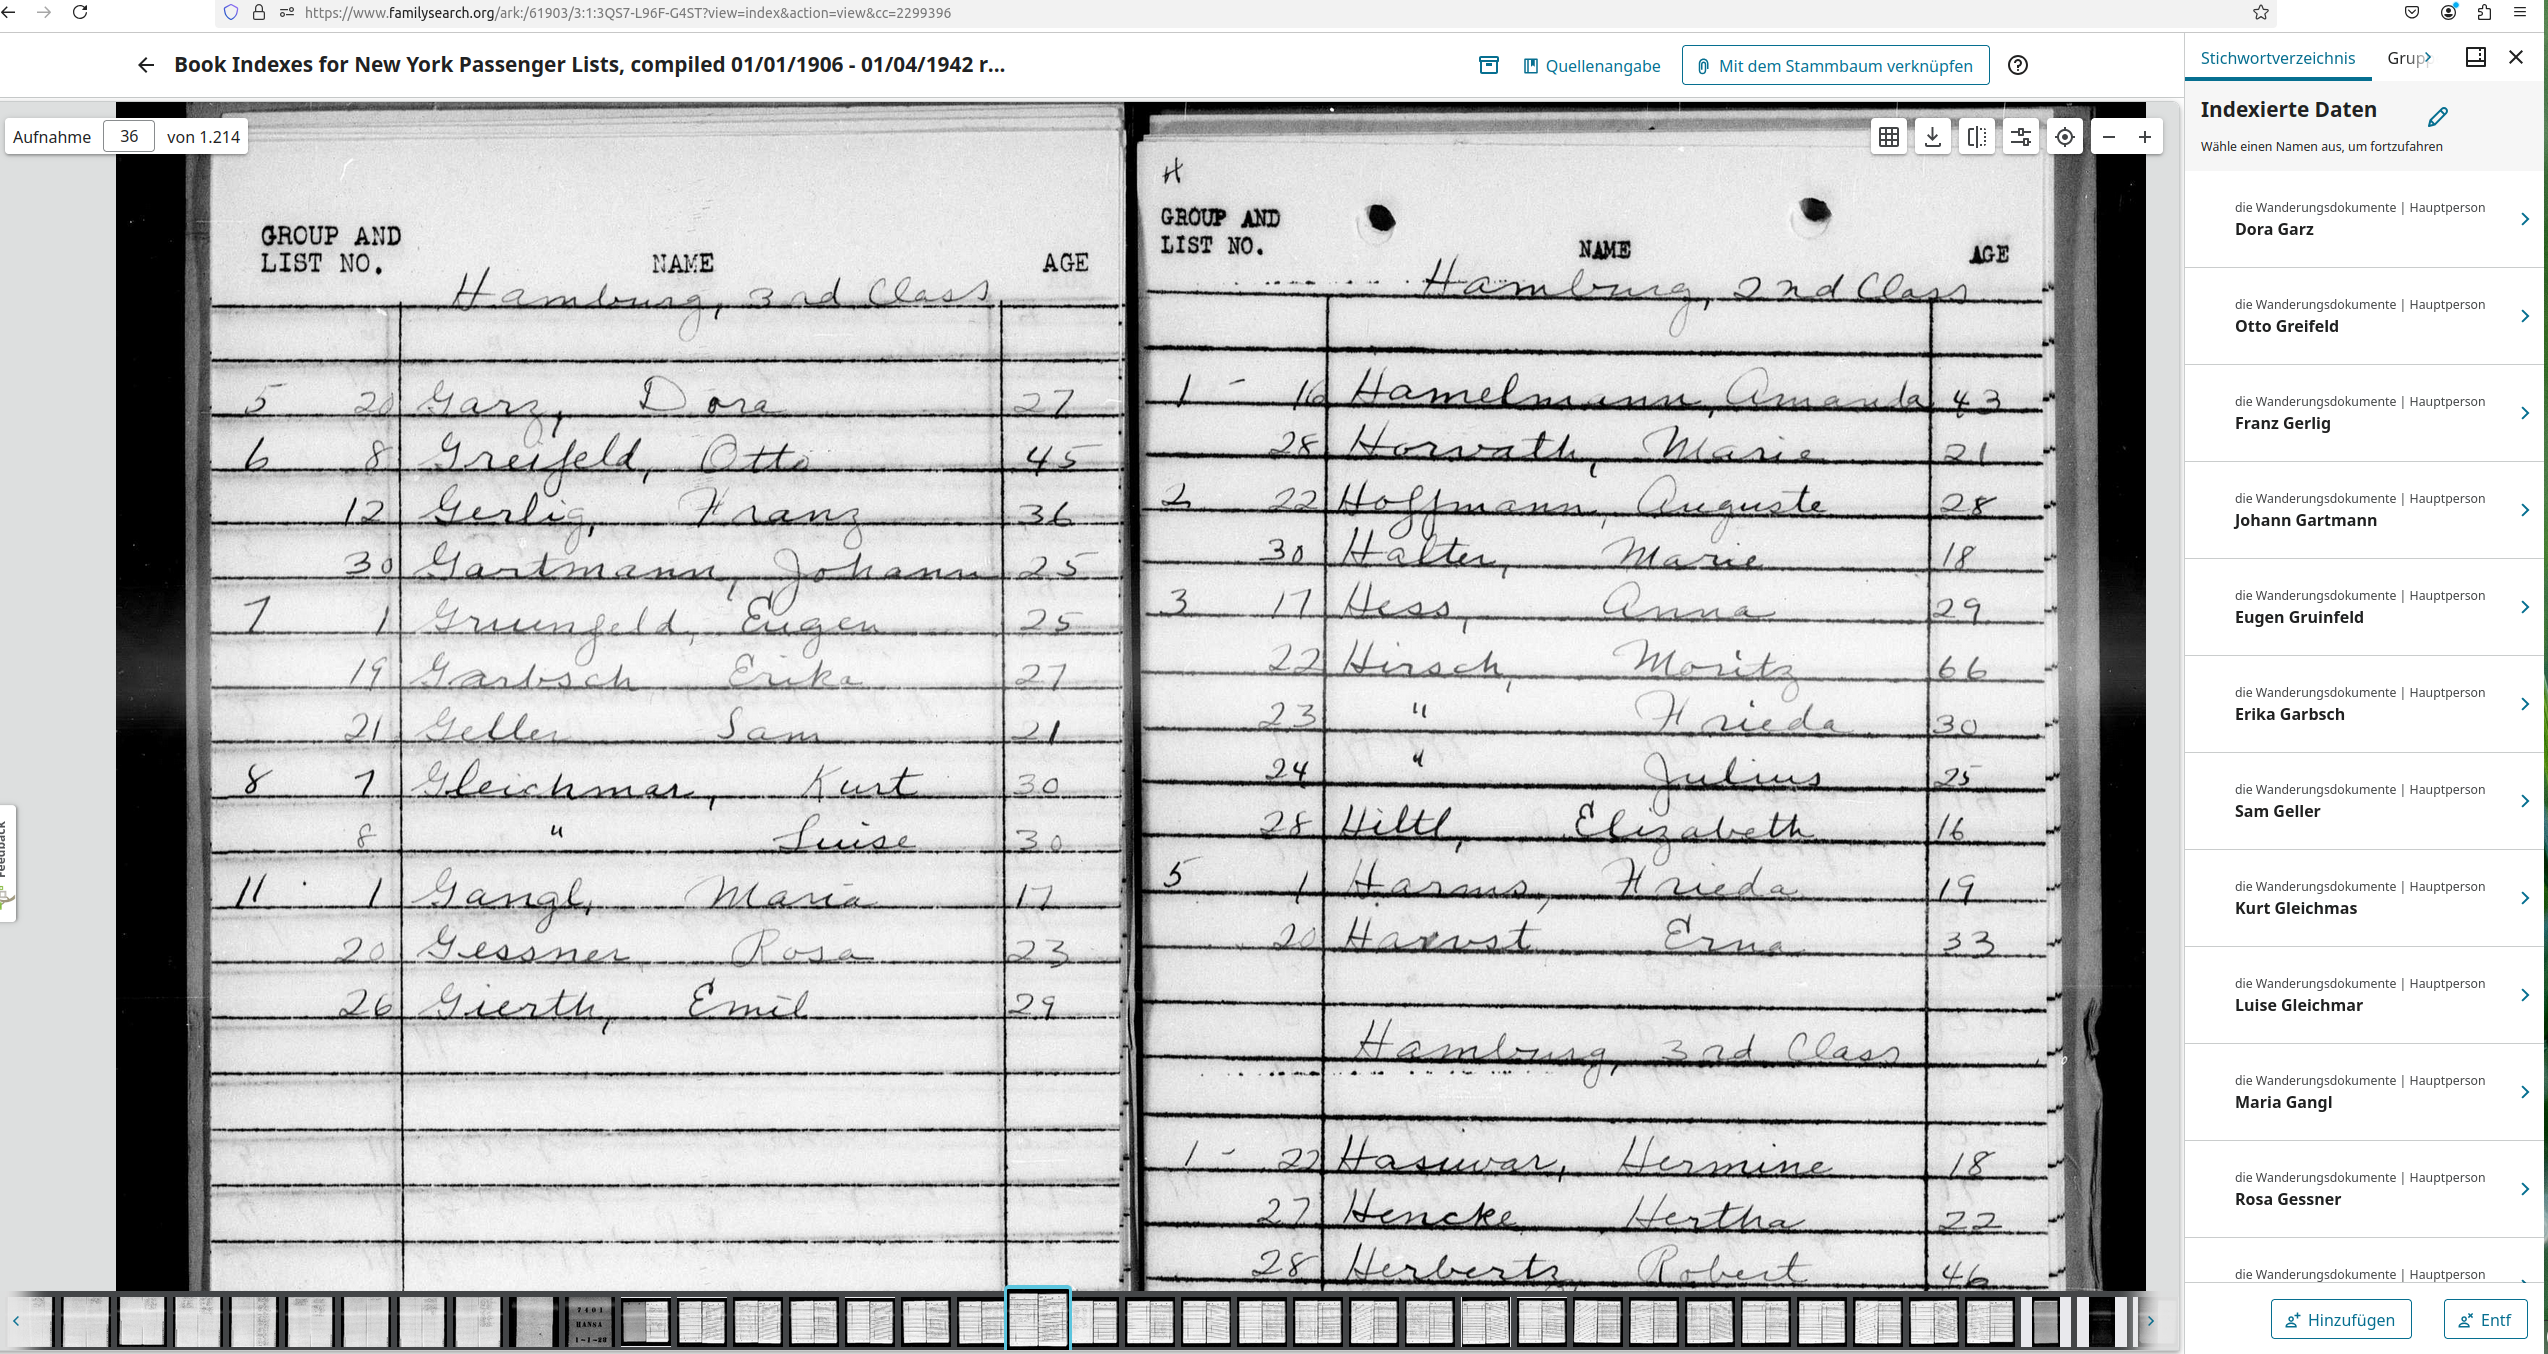 https://www.familysearch.org/ark:/61903/3:1:3QS7-L96F-G4ST?view=index&action=view&cc=2299396
Book Indexes for New York Passenger Lists, compiled 01/01/1906 - 01/04/1942 r...
Quellenangabe
Mit dem Stammbaum verknüpfen
Aufnahme 36 von 1.214
GROUP AND
LIST NO. NAME AGE
Hamburg, 3rd Class
5 20 Garz, Dora 27
6 8 Greifeld, Otto 45
12 Gerlig, Franz 36
30 Gartmann, Johann 25
7 1 Gruunfeld, Eugen 25
19 Garbsch Erika 27
21 Geller Sam 21
8 7 Gleichmar, Kurt 30
8 " Luise 30
11 1 Gangl, Maria 17
20 Gessner Rosa 23
26 Gierth, Emil 29
H
GROUP AND
LIST NO. NAME AGE
Hamburg, 2nd Class
1 - 16 Hamelmann, Amanda 43
28 Horvath, Marie 21
2 22 Hoffmann, Auguste 28
30 Halter, Marie 18
3 17 Hess, Anna 29
22 Hirsch, Moritz 66
23 " Frieda 30
24 " Julius 25
28 Hiltl, Elizabeth 16
5 1 Harms, Frieda 19
20 Harvst Erna 33
Hamburg, 3rd Class
1 - 22 Hasiwar, Hermine 18
27 Hencke Hertha 22
28 Herbertz Robert 46
Feedback
7401
HANSA
1-1-28
Stichwortverzeichnis Grup
Indexierte Daten
Wähle einen Namen aus, um fortzufahren
die Wanderungsdokumente | Hauptperson
Dora Garz
die Wanderungsdokumente | Hauptperson
Otto Greifeld
die Wanderungsdokumente | Hauptperson
Franz Gerlig
die Wanderungsdokumente | Hauptperson
Johann Gartmann
die Wanderungsdokumente | Hauptperson
Eugen Gruinfeld
die Wanderungsdokumente | Hauptperson
Erika Garbsch
die Wanderungsdokumente | Hauptperson
Sam Geller
die Wanderungsdokumente | Hauptperson
Kurt Gleichmas
die Wanderungsdokumente | Hauptperson
Luise Gleichmar
die Wanderungsdokumente | Hauptperson
Maria Gangl
die Wanderungsdokumente | Hauptperson
Rosa Gessner
die Wanderungsdokumente | Hauptperson
Hinzufügen
Entf